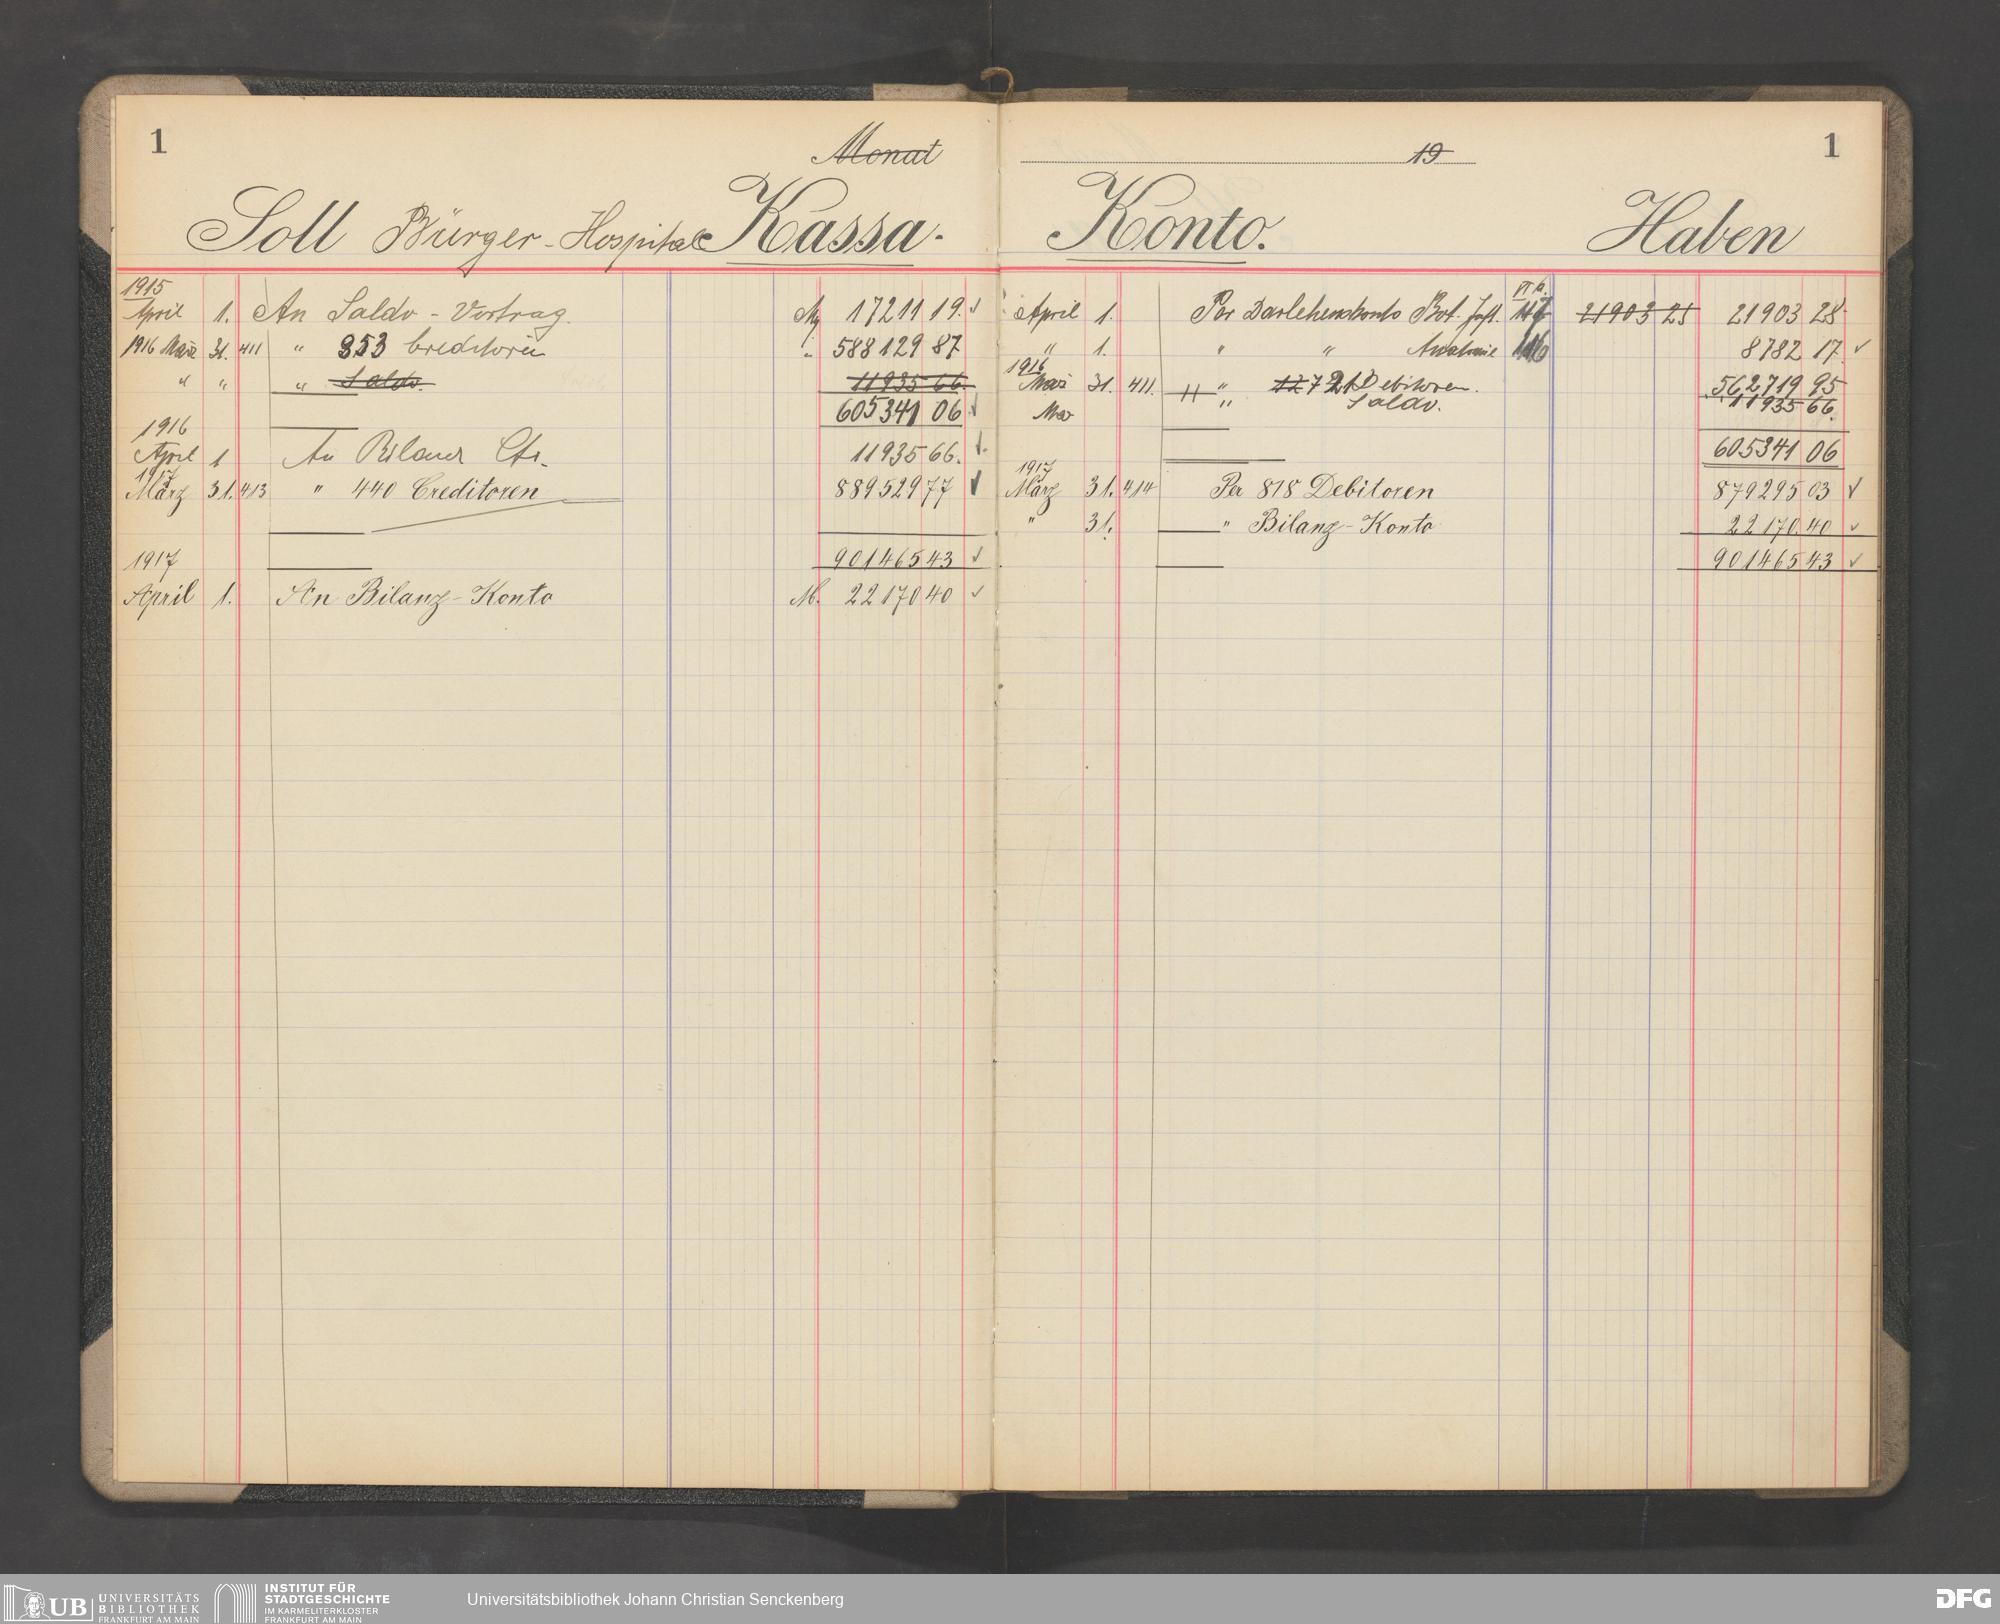 1
Monat
19
1
Soll Bürger-Hospital Kassa-
Konto. Haben
1915
April 1. An Saldo-Vortrag. M 17211 19.
1916 März 31. 411 " 853 Creditoren " 588129 87
" " " Saldo. 11935 66.
605341 06
1916
April 1 An Bilanz Cto. 11935 66.
1917
März 31. 413 " 440 Creditoren 889529 77
901465 43
1917
April 1. An Bilanz-Konto M. 22170 40
VI b.
April 1. Per Darlehenskonto Bot. Jnst. 147 21903 28 21903 28
" 1. " " Anatomie 146 8782 17
1916
März 31. 411. " 721 Debitoren. 562719 95
" Saldo. 11935 66.
605341 06
1917
März 31. 414 Per 818 Debitoren 879295 03
" 31. " Bilanz-Konto 22170.40
901465 43
UB UNIVERSITÄTS
BIBLIOTHEK
FRANKFURT AM MAIN
INSTITUT FÜR
STADTGESCHICHTE
IM KARMELITERKLOSTER
FRANKFURT AM MAIN
Universitätsbibliothek Johann Christian Senckenberg
DFG